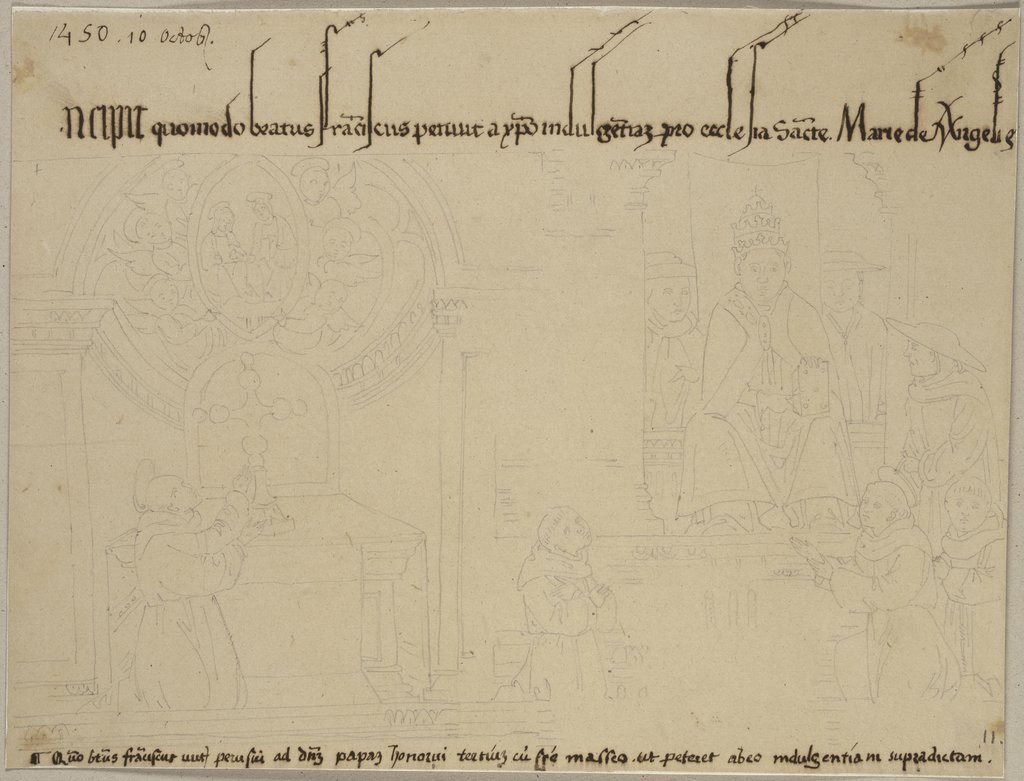 1450 . 10 Octob.
.ncipit quomodo beatus frāciscus petiuit a xp̄o indulgētiaʒ pro ecclesia Sācte. Marie de Angelis
11.
¶ Quō btūs frāciscus iuit perusiū ad dn̄ʒ papaʒ honoriū tertiūʒ cū frē masseo .ut peteret abeo indulgentiam supradictam .